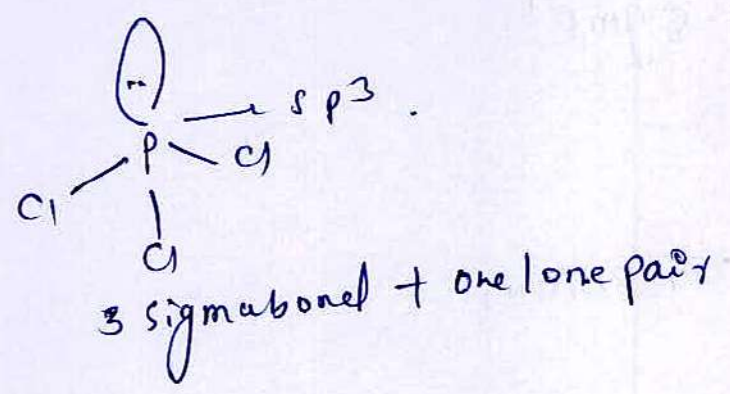 sp3.
P Cl
Cl
Cl
3 sigmabond + one lone pair